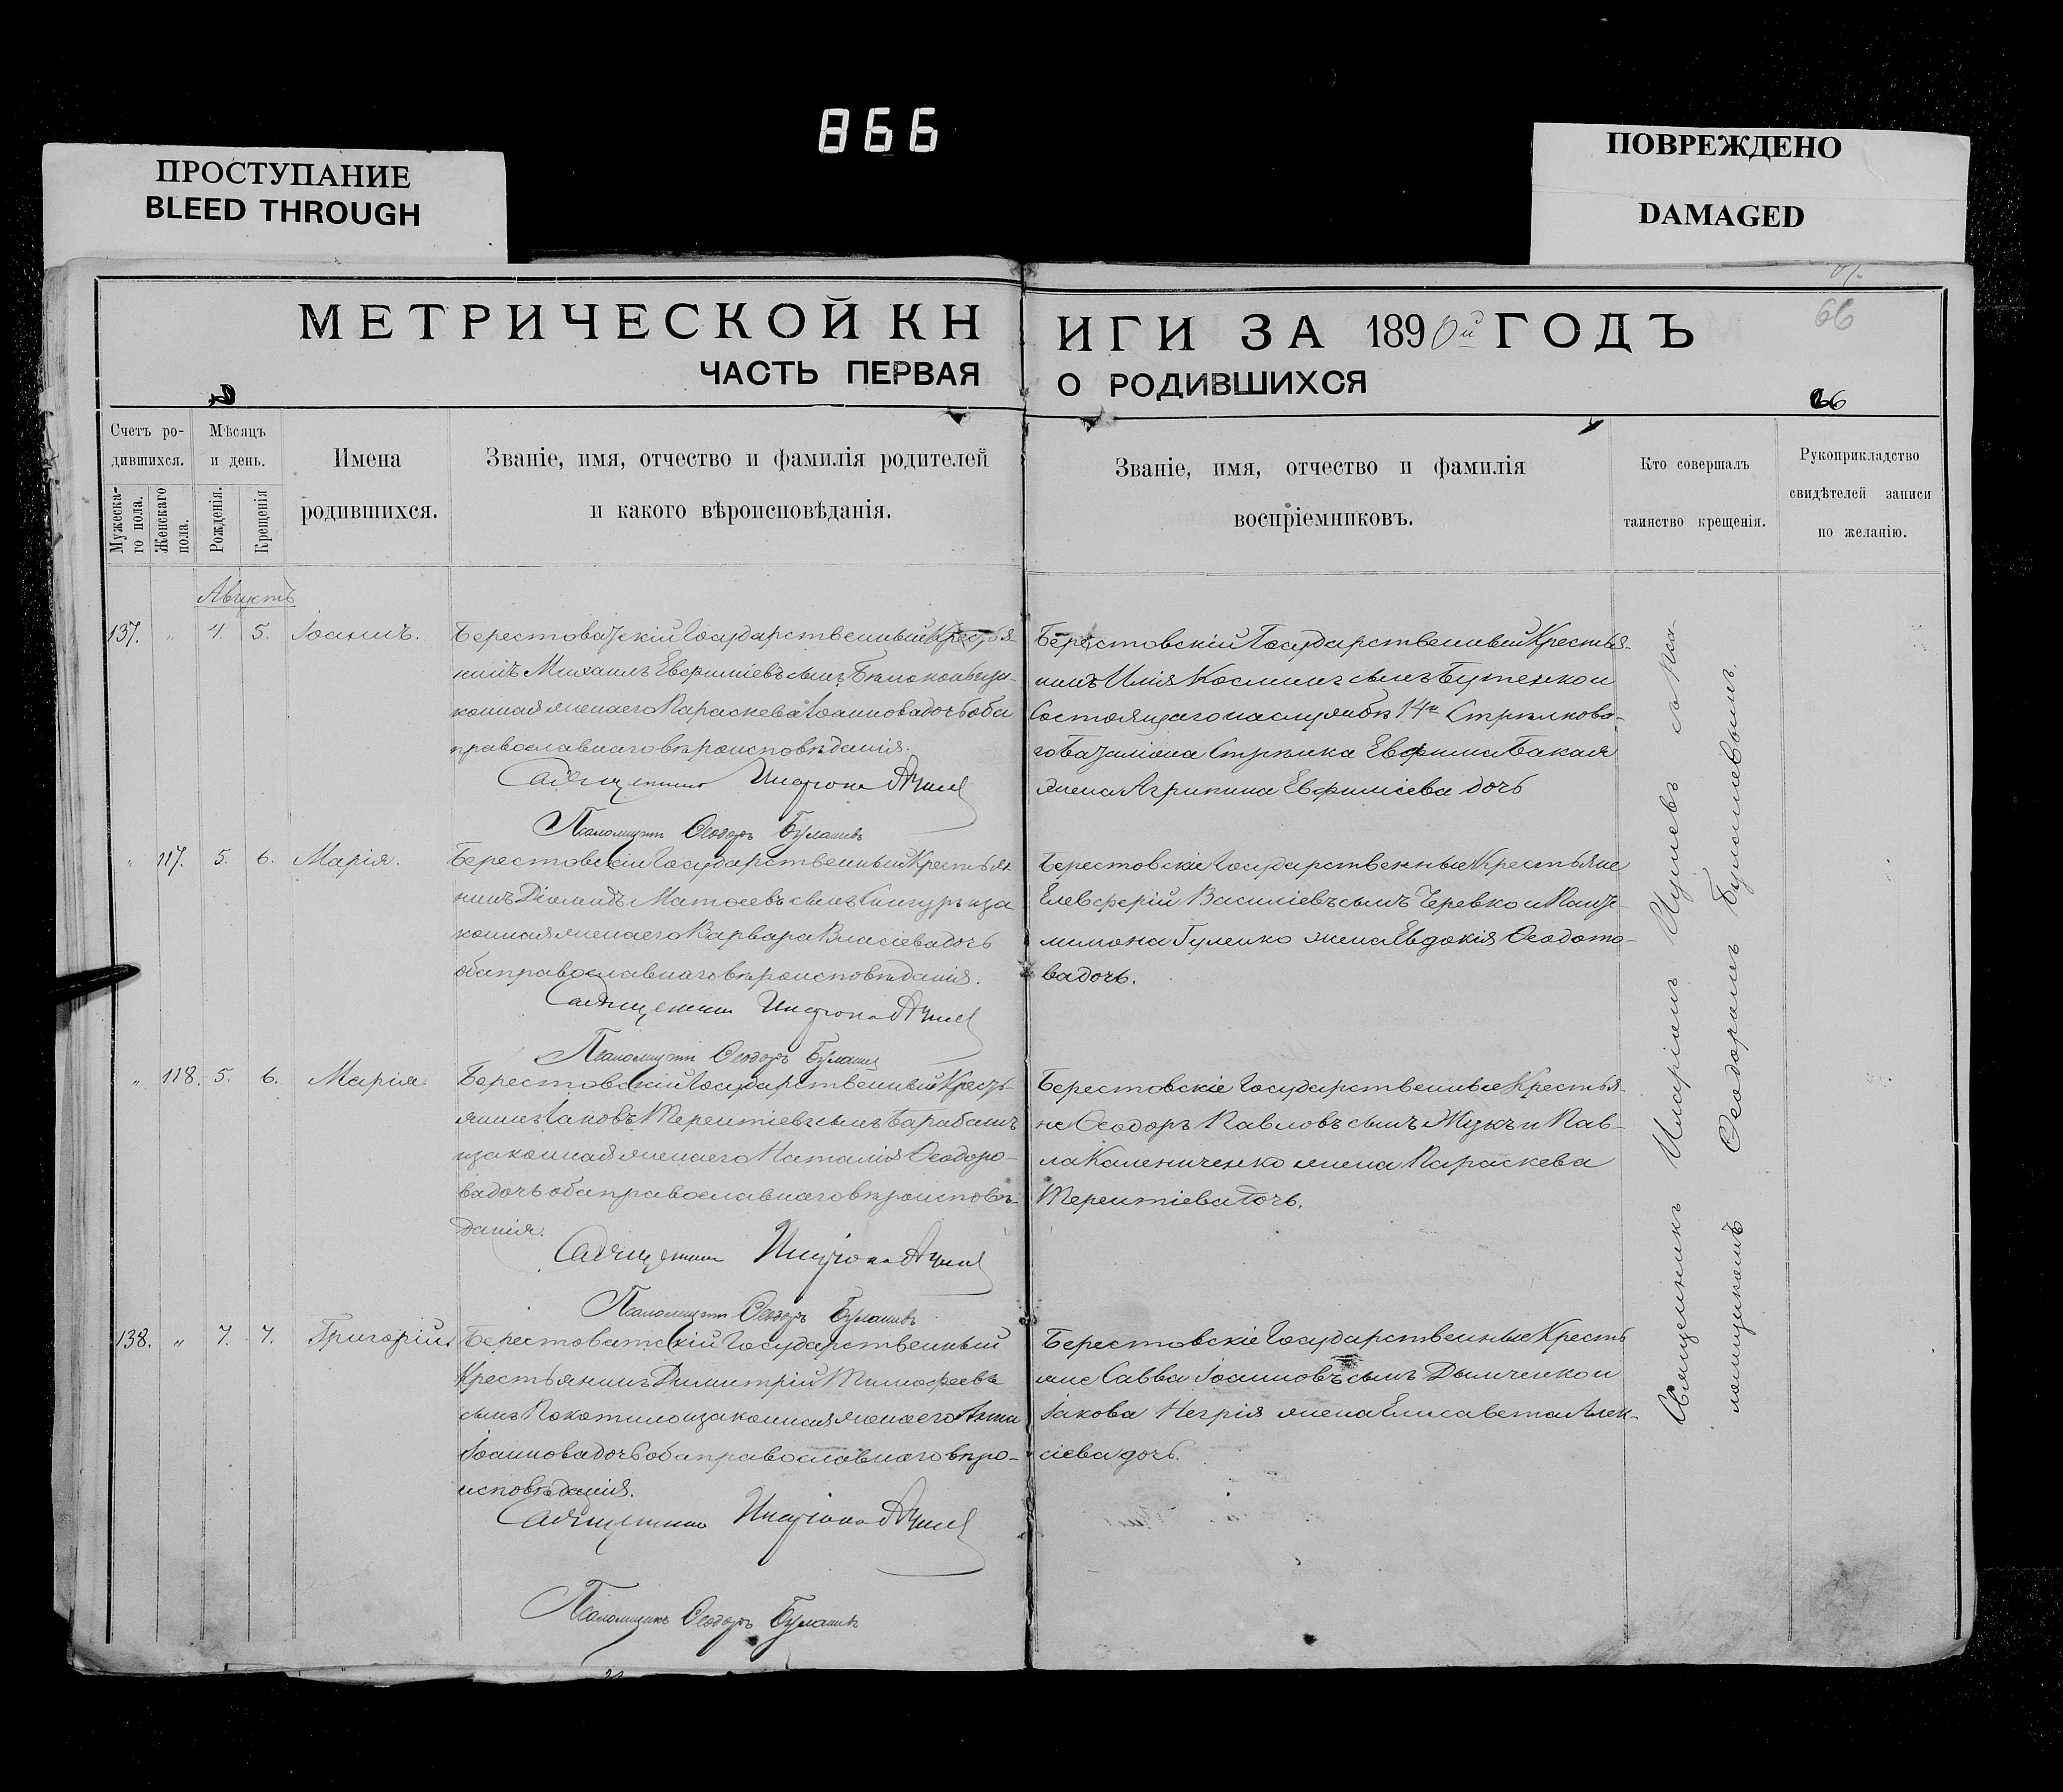 866
ПРОСТУПАНИЕ
BLEED THROUGH
ПОВРЕЖДЕНО
DAMAGED
66
МЕТРИЧЕСКОЙ КН
ИГИ ЗА 1890й ГОДЪ
ЧАСТЬ ПЕРВАЯ
О РОДИВШИХСЯ
66
Счетъ ро-
дившихся.
Мужеска-
го пола.
Женскаго
пола.
Мѣсяцъ
и день.
Рожденія.
Крещенія
Имена
родившихся.
Званіе, имя, отчество и фамилія родителей
и какого вѣроисповѣданія.
Званіе, имя, отчество и фамилія
воспріемниковъ.
Кто совершалъ
таинство крещенія.
Рукоприкладство
свидѣтелей записи
по желанію.
Августъ
137. " 4. 5. Іоаннъ.
Берестоватскій Государственный Крестья-
нинъ Михаилъ Евфиміевъ сынъ
конная жена его Параскева Іоаннова дочь оба
православнаго вѣроисповѣданія.
Священникъ
Псаломщикъ Ѳеодоръ
Берестовскій Государственный Крестья-
нинъ Илія Косминъ сынъ Бутенко и
Состоящаго на службѣ 14го Стрѣлкова-
го Баталіона Стрѣлка Евфима Бакая
жена Агрипина Евфиміева дочь
" 117. 5. 6. Марія.
Берестовскій Государственный Крестья-
нинъ Діомидъ Матѳеевъ сынъ и за
конная жена его Варвара Власіева дочь
оба православнаго вѣроисповѣданія.
Священникъ
Псаломщикъ Ѳеодоръ
Берестовскіе Государственные Крестьяне
Елевферій Василіевъ сынъ Черевко и Пант-
лимона Гуленко жена Евдокія Ѳеодото-
ва дочь.
" 118. 5. 6. Марія
Берестовскій Государственный Кресть-
янинъ Іаковъ Терентіевъ сынъ Барабашъ
и законная жена его Наталія Ѳеодоро-
ва дочь оба православнаго вѣроисповѣ-
данія.
Священникъ
Псаломщикъ Ѳеодоръ
Берестовскіе Государственные Крестья-
не Ѳеодоръ Павловъ сынъ Жукъ и Пав-
ла Калениченко жена Параскева
Терентіева дочь.
138. " 7. 7. Григорій.
Берестоватскій Государственный
Крестьянинъ Димитрій Тимоѳеевъ
сынъ Покотило и законная жена его Анна
Іоаннова дочь оба православнаго вѣро-
исповѣданія.
Священникъ
Псаломщикъ Ѳеодоръ
Берестовскіе Государственные Кресть
яне Савва Іоанновъ сынъ Дымченко и
Іакова Негрія жена Елисавета Алек-
сіева дочь.
Священникъ Иларіонъ съ Пса-
ломщикомъ Ѳеодоромъ